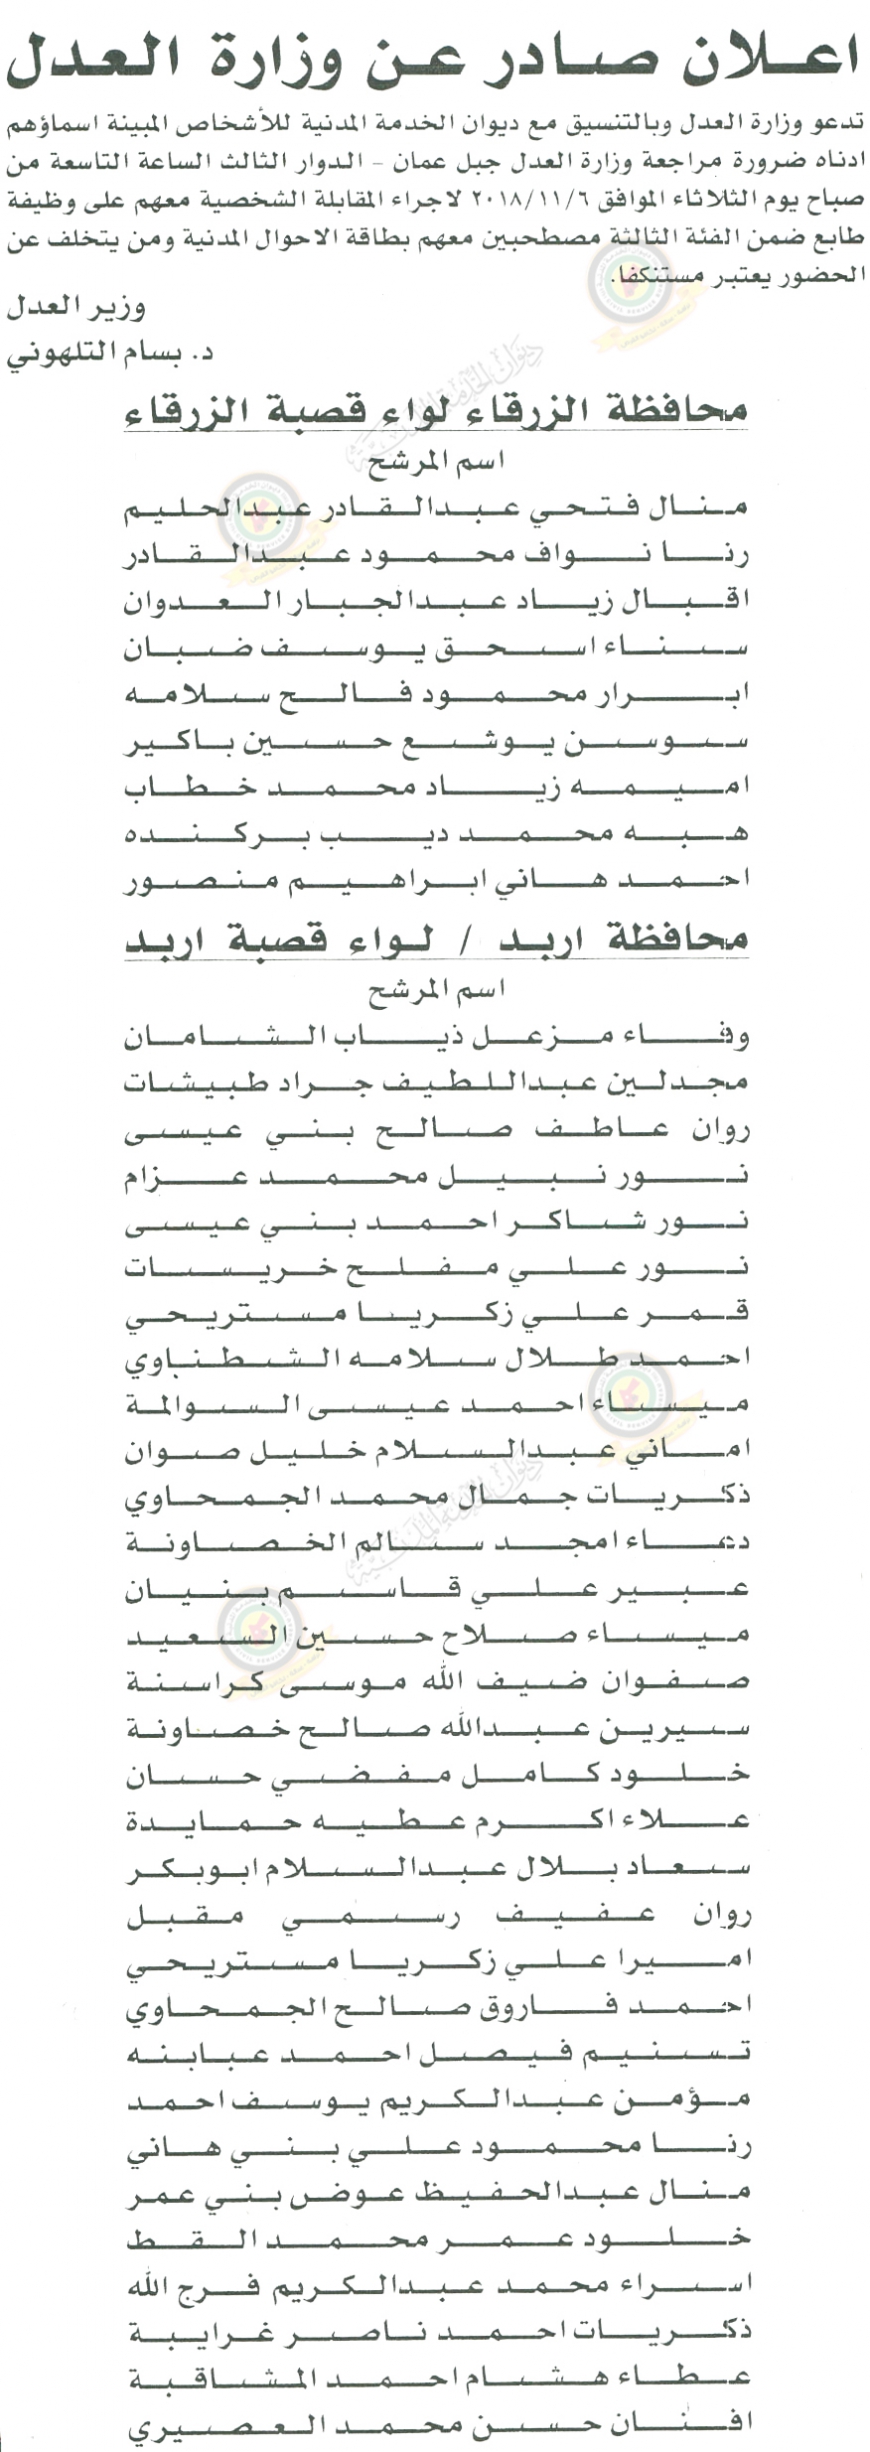 اعلان صادر عن وزارة العدل
تدعو وزارة العدل وبالتنسيق مع ديوان الخدمة المدنية للأشخاص المبينة اسماؤهم
ادناه ضرورة مراجعة وزارة العدل جبل عمان - الدوار الثالث الساعة التاسعة من
صباح يوم الثلاثاء الموافق ٢٠١٨/١١/٦ لاجراء المقابلة الشخصية معهم على وظيفة
طابع ضمن الفئة الثالثة مصطحبين معهم بطاقة الاحوال المدنية ومن يتخلف عن
الحضور يعتبر مستنكفا.
وزير العدل
د. بسام التلهوني
محافظة الزرقاء لواء قصبة الزرقاء
اسم المرشح
منال فتحي عبدالقادر عبدالحليم
رنا نواف محمود عبدالقادر
اقبال زياد عبدالجبار العدوان
سناء اسحق يوسف ضبان
ابرار محمود فالح سلامه
سوسن يوشع حسين باكير
اميمه زياد محمد خطاب
هبه محمد ديب بركنده
احمد هاني ابراهيم منصور
محافظة اربد / لواء قصبة اربد
اسم المرشح
وفاء مزعل ذياب الشامان
مجدلين عبداللطيف جراد طبيشات
روان عاطف صالح بني عيسى
نور نبيل محمد عزام
نور شاكر احمد بني عيسى
نور علي مفلح خريسات
قمر علي زكريا مستريحي
احمد طلال سلامه الشطناوي
ميساء احمد عيسى السوالمة
اماني عبدالسلام خليل صوان
ذكريات جمال محمد الجمحاوي
دعاء امجد سالم الخصاونة
عبير علي قاسم بنيان
ميساء صلاح حسين السعيد
صفوان ضيف الله موسى كراسنة
سيرين عبدالله صالح خصاونة
خلود كامل مفضي حسان
علاء اكرم عطيه حمايدة
سعاد بلال عبدالسلام ابوبكر
روان عفيف رسمي مقبل
اميرا علي زكريا مستريحي
احمد فاروق صالح الجمحاوي
تسنيم فيصل احمد عبابنه
مؤمن عبدالكريم يوسف احمد
رنا محمود علي بني هاني
منال عبدالحفيظ عوض بني عمر
خلود عمر محمد القط
اسراء محمد عبدالكريم فرج الله
ذكريات احمد ناصر غرايبة
عطاء هشام احمد المشاقبة
افنان حسن محمد العصيري